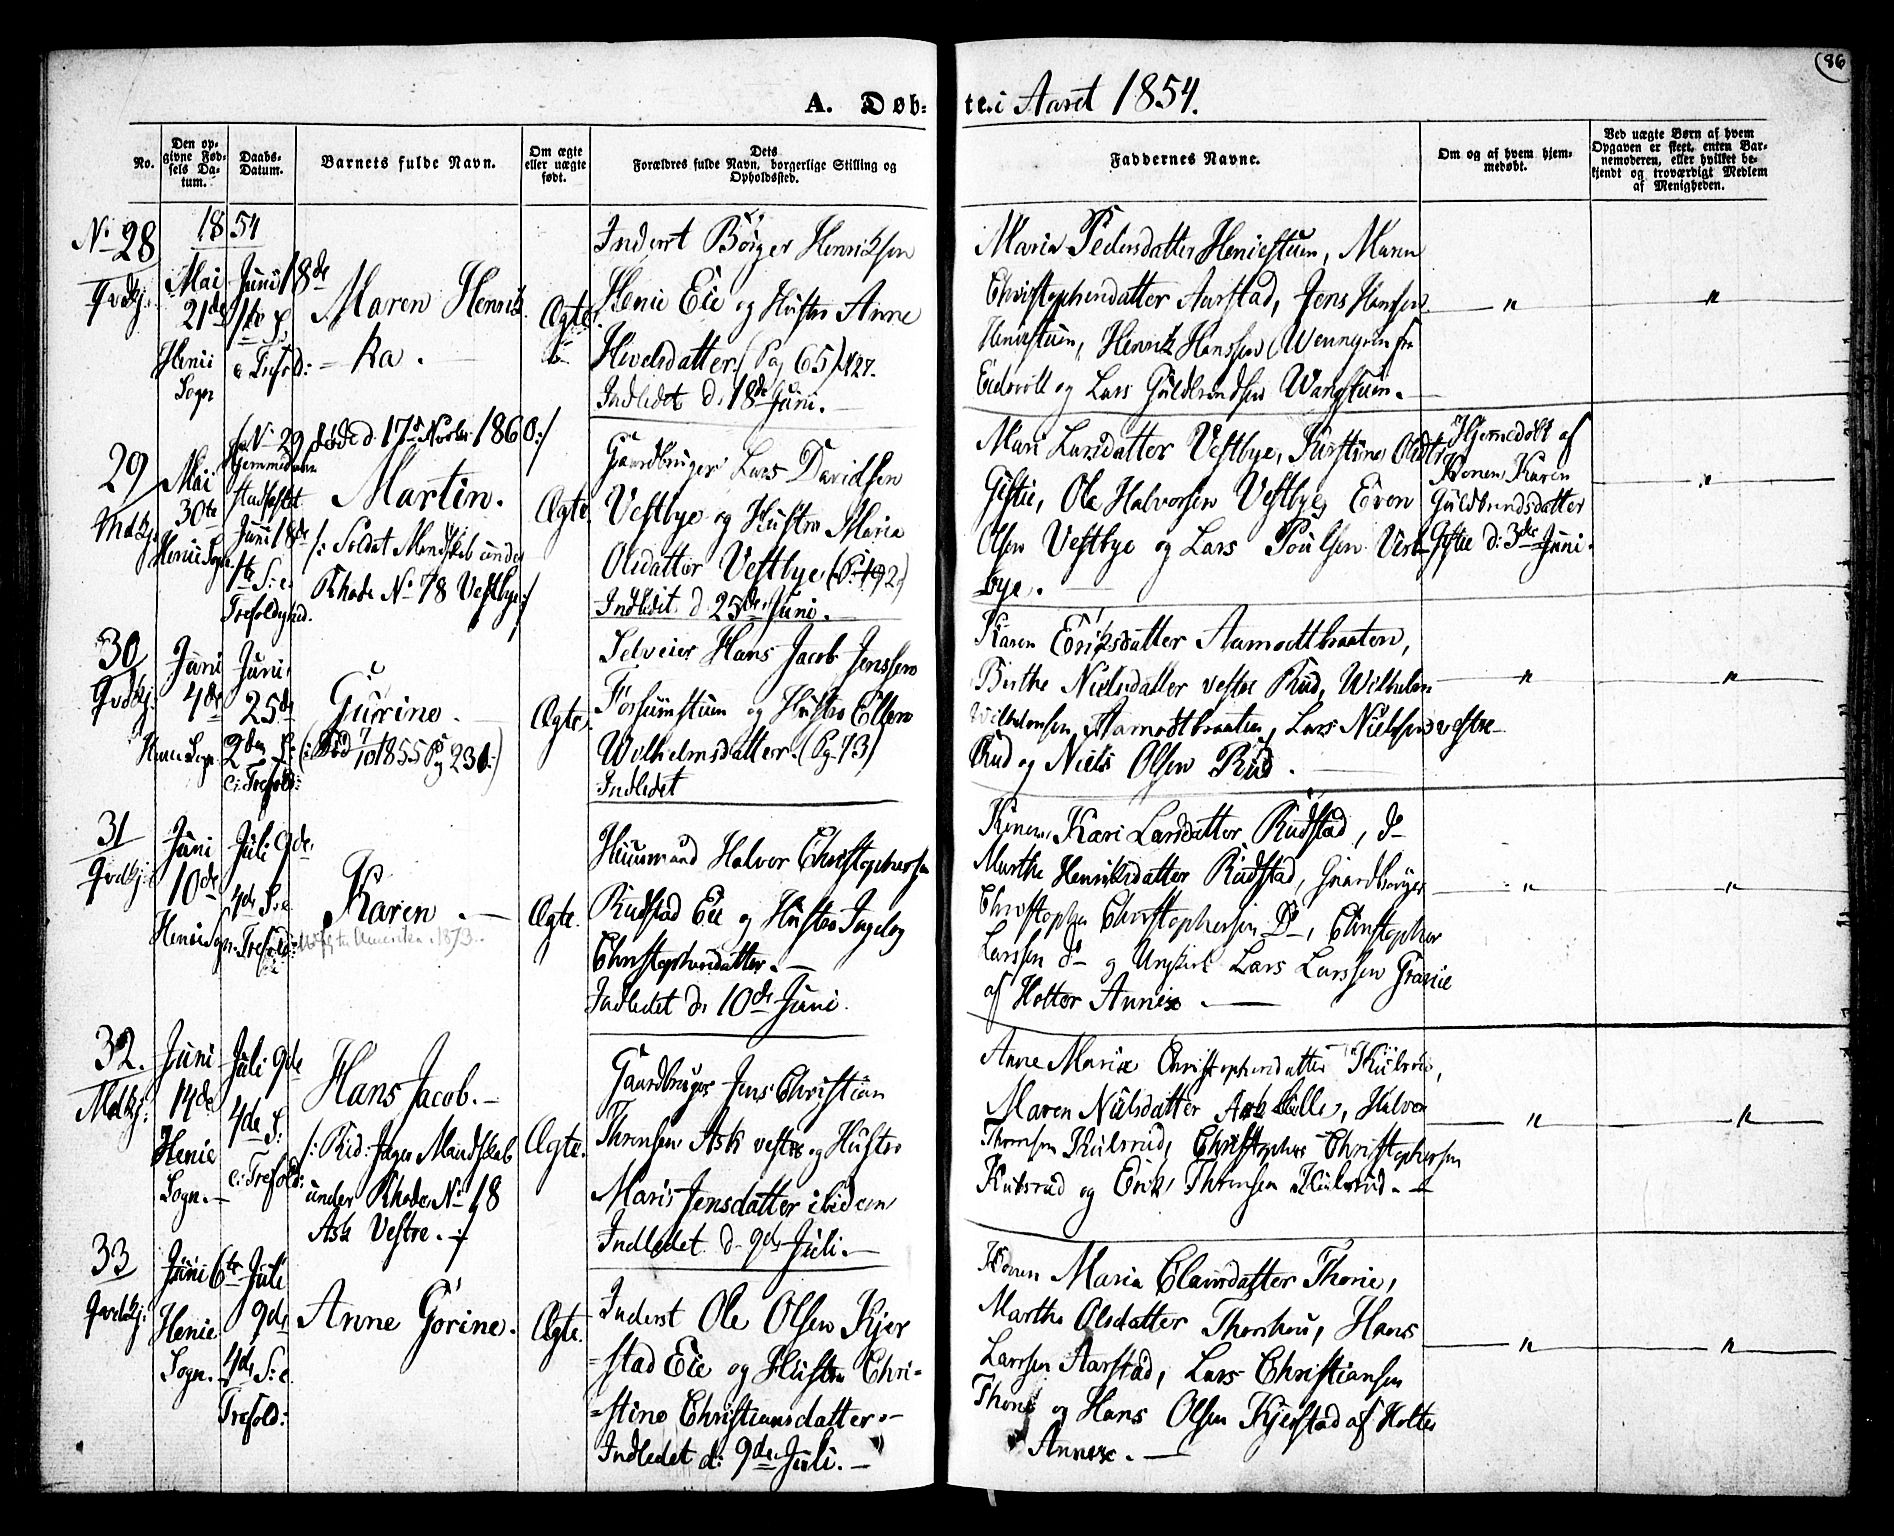 86
A. Døb: te i Aaret 1854.
No.
Den op-
givne Fød-
sels Da-
tum.
Daabs-
Datum.
Barnets fulde Navn.
Om ægte
eller uægte
født.
Dets
Forældres fulde Navn, borgerlige Stilling og
Opholdssted.
Faddernes Navne.
Om og af hvem hjem-
medøbt.
Ved uægte Børn af hvem
Opgaven er skeet, enten Bar-
nemoderen, eller hvilket be-
kjendt og troværdigt Medlem
af Menigheden.
1854
No 28
Qvdkj.
Mai
21de
Henie
Sogn
Juni 18de
1te S.
e Trefold:
Maren Henrik
= ka.
Ægte
Inderst Börger Henriksen
Henie Eie og Hustro Anne
Hevelsdatter (Pag 65)
Indledet d. 18de Juni.
Maria Pedersdatter Heniestuen, Maren
Christophersdatter Aarstad, Jens Hansen
Heniestuen, Henrik Hanssen Wenngren fra
Eidsvoll og Lars Guldbrandsen Wangstuen.
"
"
29
Mdkj.
Mai
30te
Henie Sogn
No 29 døde d. 17de Novbr. 1860:/
Hjemmedøbt
Stadfæstet
Juni 18de
1te S: e.
Trefoldighed.
Martin.
/: Soldat Mandskab under
Rhode No 78 Vestbye:/
Ægte.
Gaardbruger Lars Davidsen
Vestbye og Hustro Maria
Olsdatter Vestbye (P. 192)
Indledet d 25de Juni.
Mari Larsdatter Vestbye, Kirstine Olsdtr
Gistie, Ole Halvorsen Vestbye, Even
Olsen Vestbye og Lars Poulsen Vest-
bye.
Hjemedöbt af
Konen Karen
Guldbrandsdatter
Gistie d: 3de Juni.
"
30
Qvdkj.
Juni
4de
Henie Sogn
Juni
25de
2den S:
e: Trefold:
Gurine.
(: Död 7/10 1855 Pag 230:)
Ægte.
Selveier Hans Jacob Jenssen
Forsumstuen og Hustro Ellen
Wilhelmsdatter. (Pg. 73)
Indledet
Karen Eriksdatter Aamodtbraaten,
Birthe Nielsdatter vestre Rud, Wilhelm
Wilhelmsen Aamodtbraaten, Lars Nielssen vestre
Rud og Niels Olsen Rud.
"
"
31
Qvdkj.
Juni
10de
Henie Sogn.
Juli 9de
4de S: e
Trefold:
Karen.
Amerika 1873.
Ægte.
Huusmand Halvor Christophersen
Rudstad Eie og Hustro Ingeborg
Christophersdatter.
Indledet d. 10de Juni.
Konen Kari Larsdatter Rudstad, do
Marthe Henriksdatter Rudstad, Gaardbruger
Christopher Christophersen Do, Christopher
Larssen do og Ungkarl Lars Larssen
af Holter Annex.
"
"
32.
Mdkj:
Juni
14de
Henie
Sogn.
Juli 9de
4de S:
e: Trefold:
Hans Jacob.
/: Rid: Jæger Mandskab
under Rhode No 18
Ask Vestre. :/
Ægte.
Gaardbruger Jens Christian
Thronsen Ask vestre og Hustro
Maria Jensdatter ibidem
Indledet d. 9de Juli.
Anne Maria Christophersdatter Kulsrud,
Maren Nielsdatter Ask lille, Halvor
Thronsen Kulsrud, Christopher Christophersen
Kulsrud og Erik Thronsen Kulsrud.
"
"
33
Qvdkj.
Juni 6te
Henie
Sogn.
Juli
9de
4de S: e.
Trefold:
Anne Gorine.
Ægte.
Inderst Ole Olsen Kjer
= stad Eie og Hustro Chri=
= stine Christiansdatter.
Indledet d: 9de Juli.
Konen Maria Clausdatter Thorie,
Marthe Olsdatter Thorshou, Hans
Larssen Aarstad, Lars Christiansen
Thorie og Hans Olsen Kjerstad af Holter
Annex.
"
"